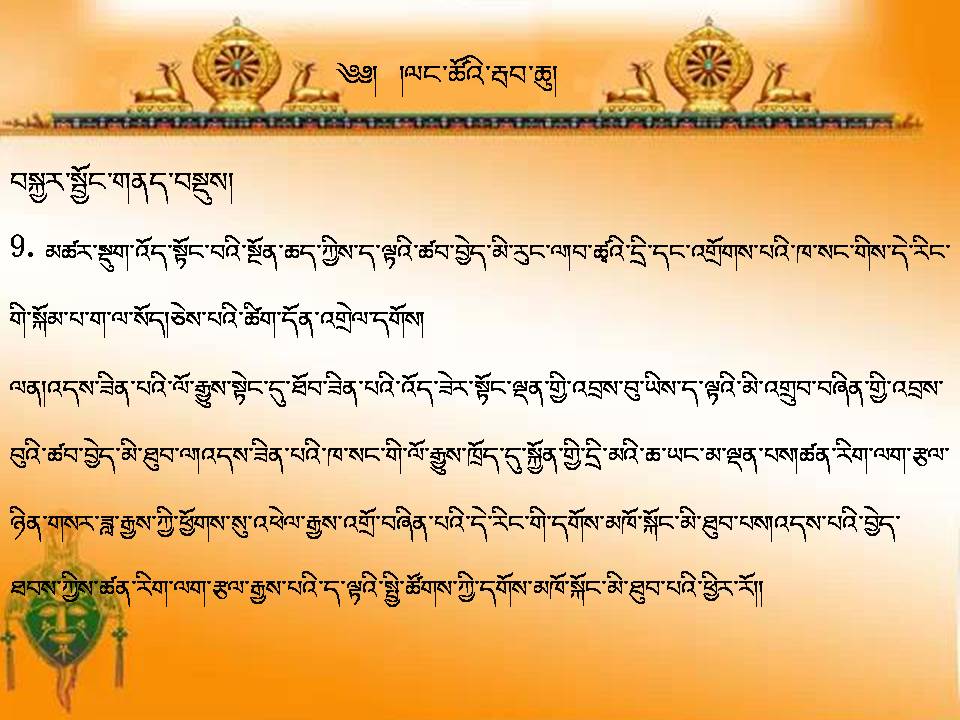 ༄༅།  །ལང་ཚོའི་རྦབ་ཆུ།
བསྐྱར་སྦྱོང་གནད་བསྡུས།
9. མཚར་སྡུག་འོད་སྟོང་བའི་སྔོན་ཆད་ཀྱིས་ད་ལྟའི་ཚབ་བྱེད་མི་རུང་ལ།བ་ཚྭའི་དྲི་དང་འགྲོགས་པའི་ཁ་སང་གིས་དེ་རིང་
གི་སྐོམ་པ་ག་ལ་སོད།ཅེས་པའི་ཚིག་དོན་འགྲེལ་དགོས།
ལན།འདས་ཟིན་པའི་ལོ་རྒྱུས་སྟེང་དུ་ཐོབ་ཟིན་པའི་འོད་ཟེར་སྟོང་ལྡན་གྱི་འབྲས་བུ་ཡིས་ད་ལྟའི་མི་འགྲུབ་བཞིན་གྱི་འབྲས་
བུའི་ཚབ་བྱེད་མི་ཐུབ་ལ།འདས་ཟིན་པའི་ཁ་སང་གི་ལོ་རྒྱུས་ཁྲོད་དུ་སྐྱོན་གྱི་དྲི་མའི་ཆ་ཡང་མ་ལྡན་པས།ཚན་རིག་ལག་རྩལ་
ཉིན་གསར་ཟླ་རྒྱས་ཀྱི་ཕྱོགས་སུ་འཕེལ་རྒྱས་འགྲོ་བཞིན་པའི་དེ་རིང་གི་དགོས་མཁོ་སྐོང་མི་ཐུབ་པས།འདས་པའི་བྱེད་
ཐབས་ཀྱིས་ཚན་རིག་ལག་རྩལ་རྒྱས་པའི་ད་ལྟའི་སྤྱི་ཚོགས་ཀྱི་དགོས་མཁོ་སྐོང་མི་ཐུབ་པའི་ཕྱིར་རོ།།